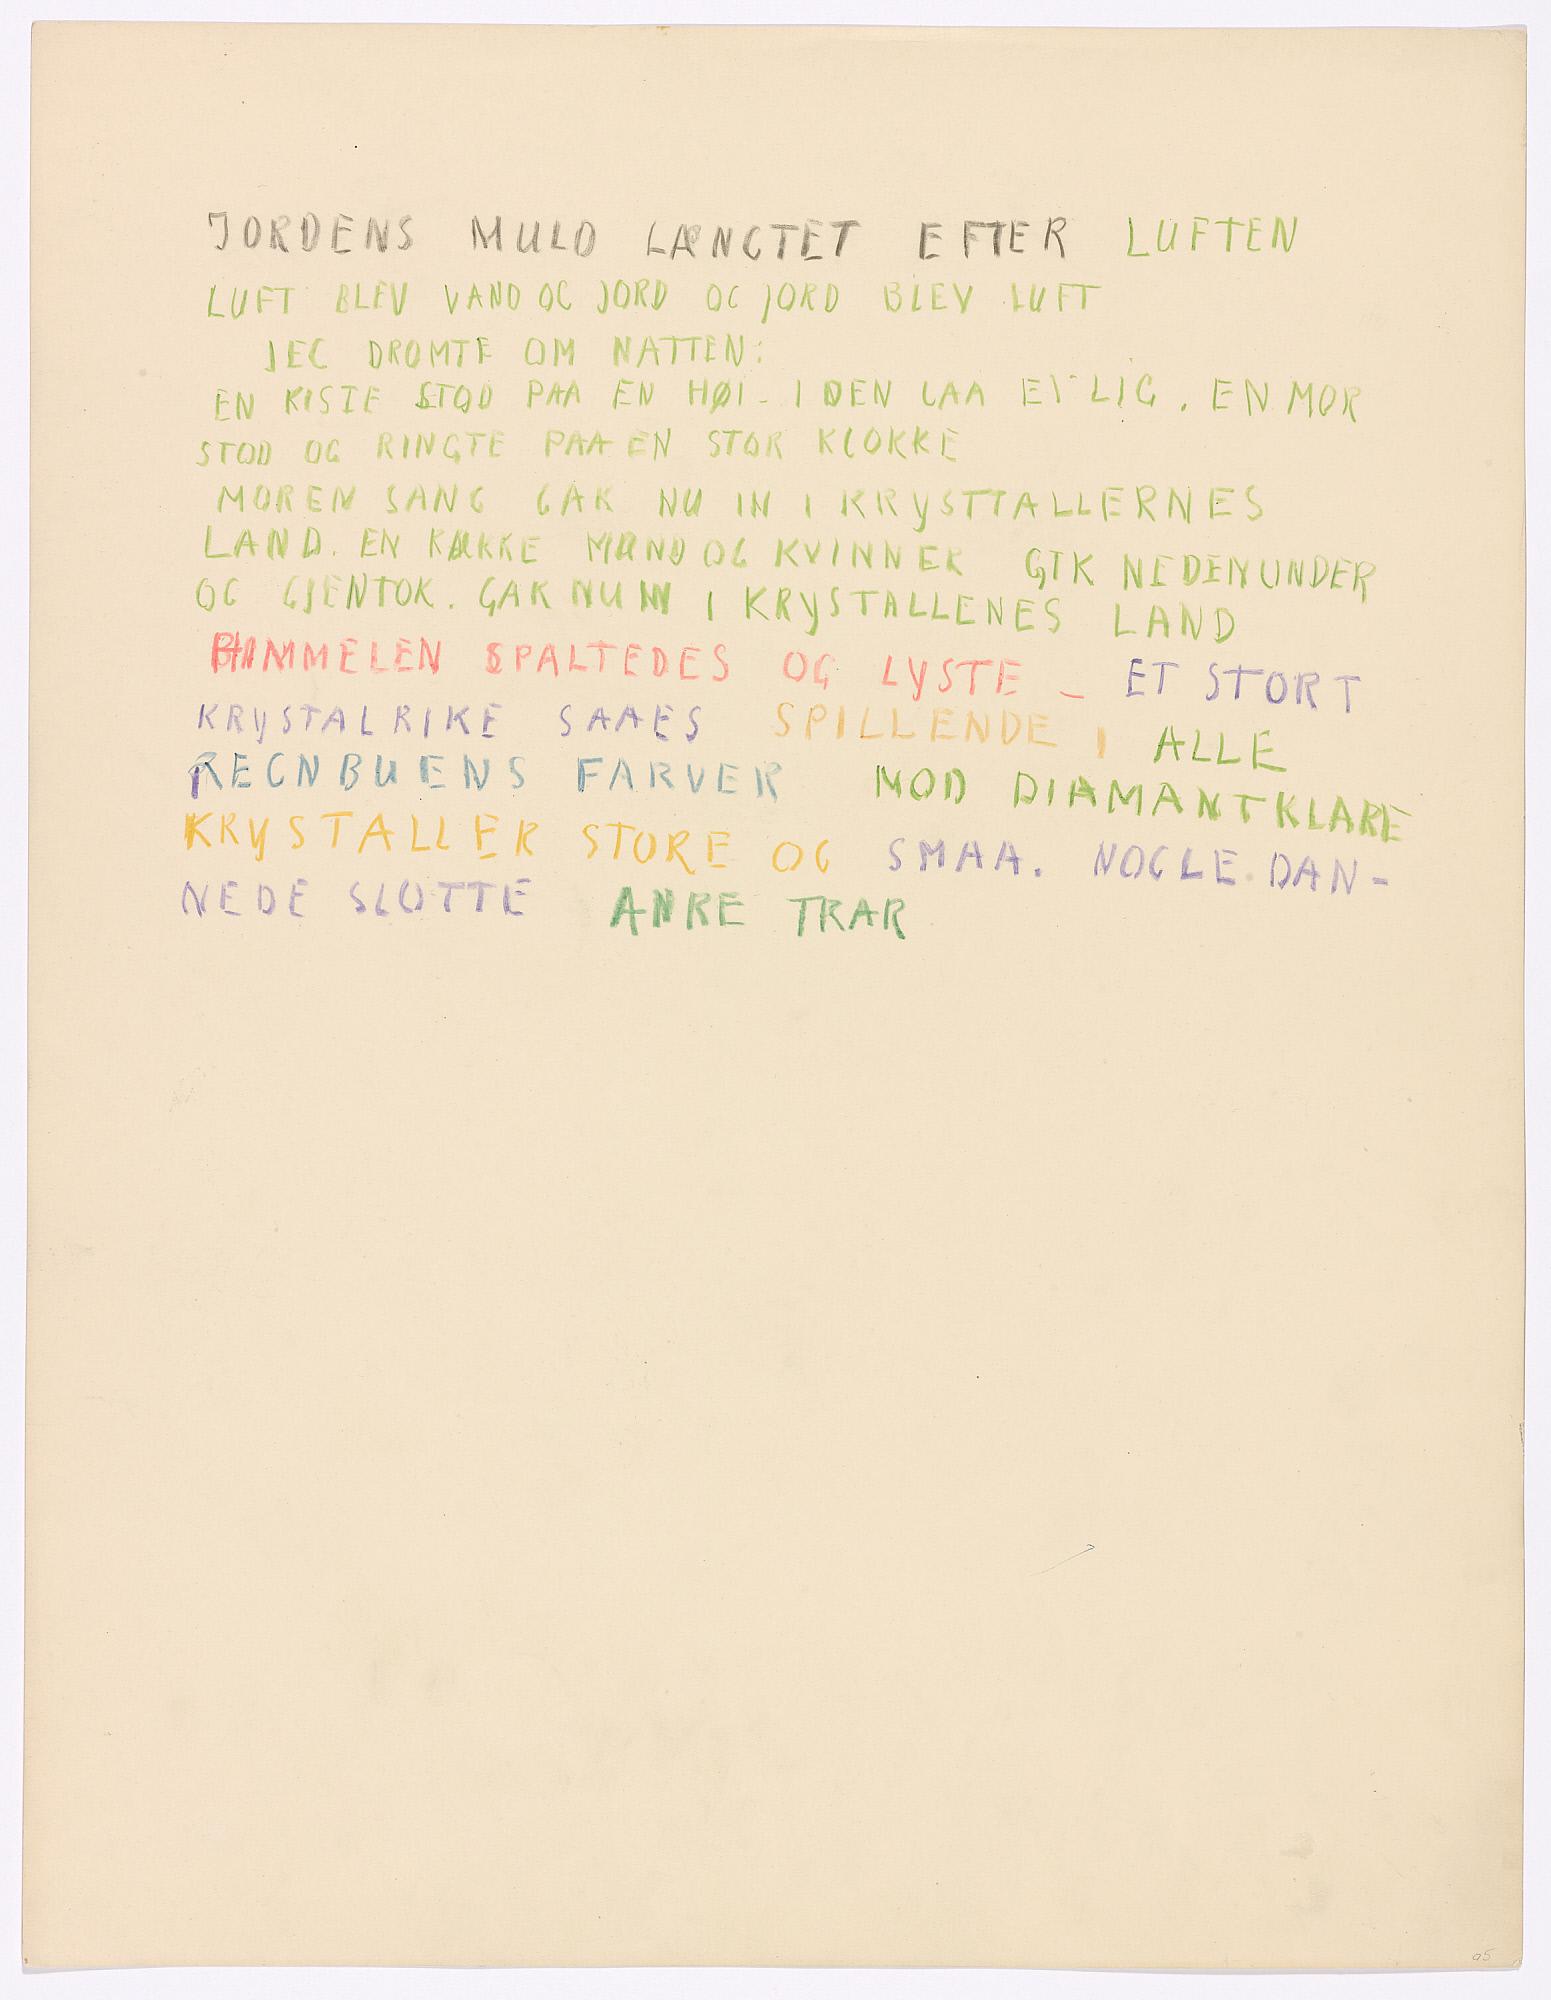 JORDENS MULD LÆNGTET EFTER LUFTEN
LUFT BLEV VAND OG JORD OG JORD BLEV LUFT
JEG DROMTE OM NATTEN:
EN KISTE STOD PAA EN HØI - I DEN LAA ET LIG. EN MOR
STOD OG RINGTE PAA EN STOR KLOKKE
MOREN SANG GAK NU IN I KRYSTTALLERNES
LAND. EN RÆKKE MÆND OG KVINNER GIK NEDENUNDER
OG GJENTOK. GAK NU IN I KRYSTALLENES LAND
HIMMELEN SPALTEDES OG LYSTE _ ET STORT
KRYSTALRIKE SAAES SPILLENDE I ALLE
REGNBUENS FARVER MOD DIAMANTKLARE
KRYSTALLER STORE OG SMAA. NOGLE DAN-
NEDE SLOTTE ANRE TRAR
05